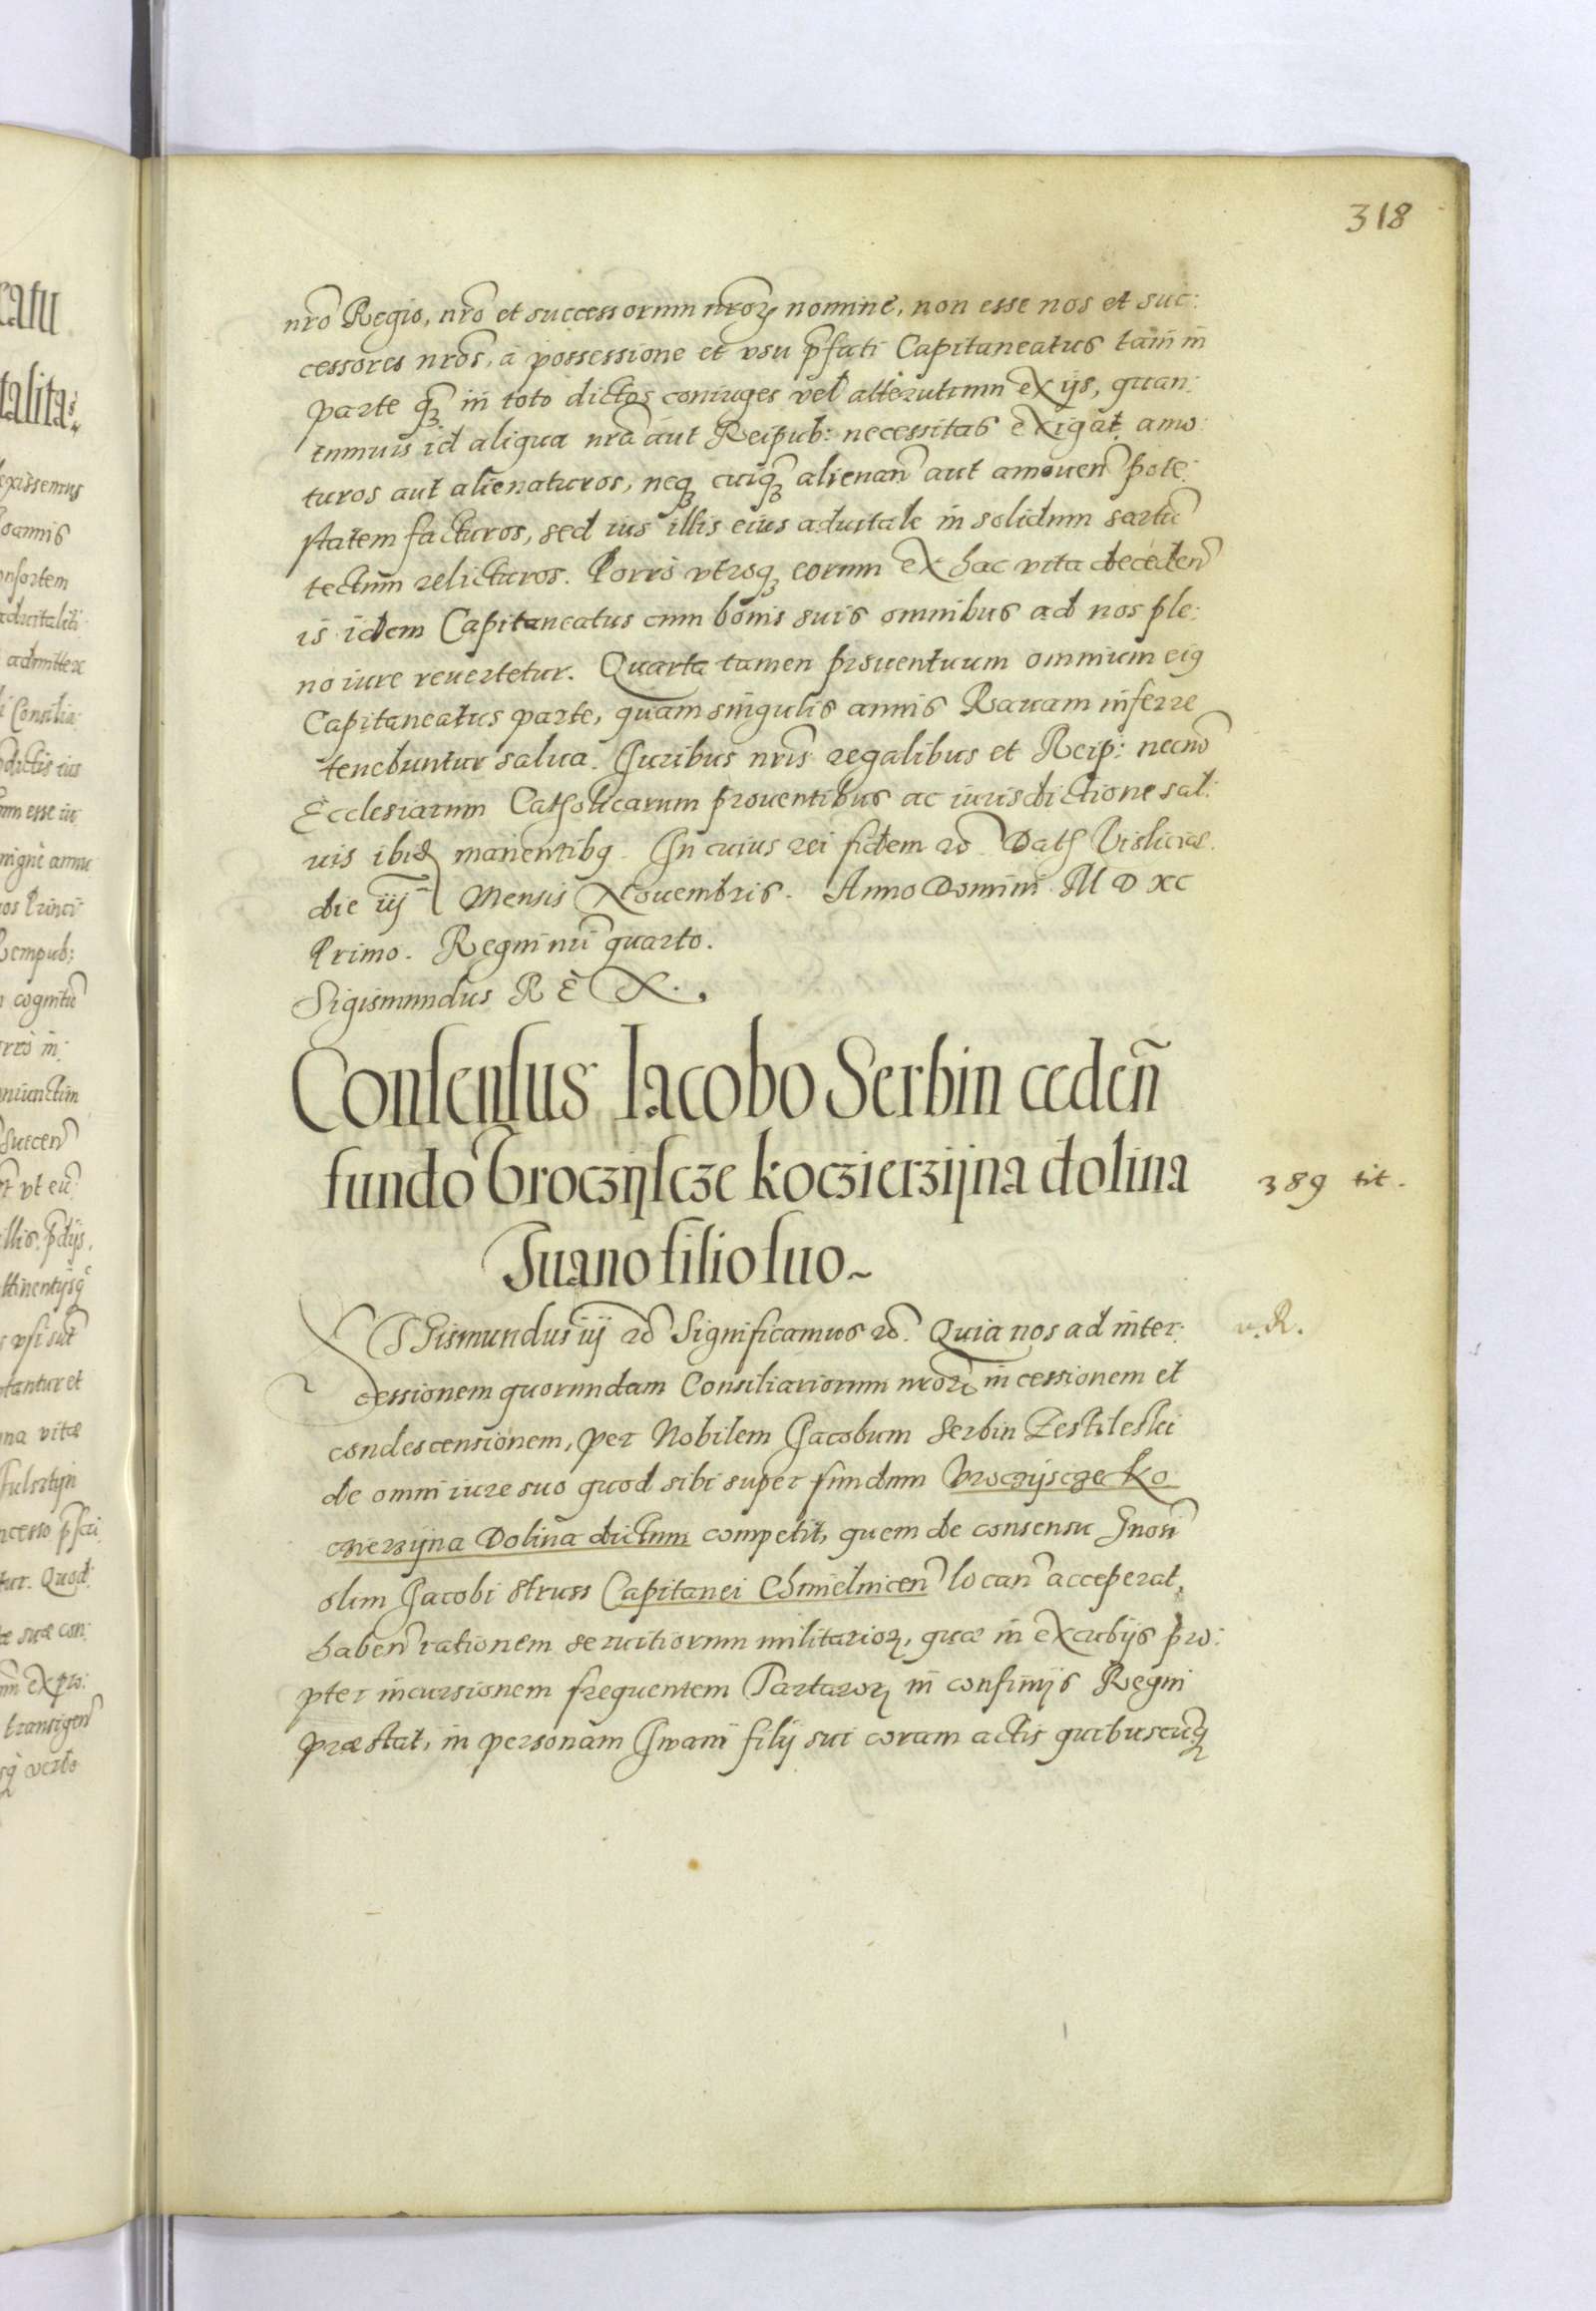 318
nro Regio, nro et successorum nrorȝ nomine, non esse nos et suc:
cessores nros, a possessione et vsu pfati Capitaneatus tam in
parte qȝ in toto dictos coniuges vel alterutrum ex ijs, quan:
tumuis id aliqua nra aut Reipub: necessitas exigat, amo:
turos aut alienaturos, neqȝ cuiqȝ alienan aut amouen pote:
statem facturos, sed ius illis eius aduitale in solidum sartu
tectum relicturos. Porro vtroqȝ eorum ex hac vita deceden
is idem Capitaneatus cum bonis suis omnibus ad nos ple:
no iure reuertetur. Quarta tamen prouentuum omnium eiꝯ
Capitaneatus parte, quam singulis annis Rauam inferre
tenebuntur salua. Juribus nris regalibus et Reip: necno
Ecclesiarum Catholicarum prouentibus ac iurisdictione sal:
uis ibid manentibꝯ. In cuius rei fidem ec Dat Visliciæ
die iij Mensis Nouembris. Anno Domini M D XC
Primo. Regni nri quarto.
Sigismundus REX.
Consensus Iacobo Serbin ceden
fundo Vroczyscze koczierzijna dolina
Iuano filio suo
389 tit.
SIGismundus iij ec Significamus ec. Quia nos ad inter:
v. R.
cessionem quorundam Consiliariorum nrorȝ in cessionem et
condescensionem, per Nobilem Jacobum Serbin Pestileski
de omni iure suo quod sibi super fundum Vroczijscze Ko
czierzijna Dolina dictum competit, quem de consensu Gnosi
olim Jacobi Struss Capitanei Chmielnicen locan acceperat,
haben rationem seruitiorum militariorȝ, quæ in excubijs pro:
pter incursionem frequentem Tartarorȝ in confinijs Regni
præstat, in personam Iwani filij sui coram actis quibuscuqȝ